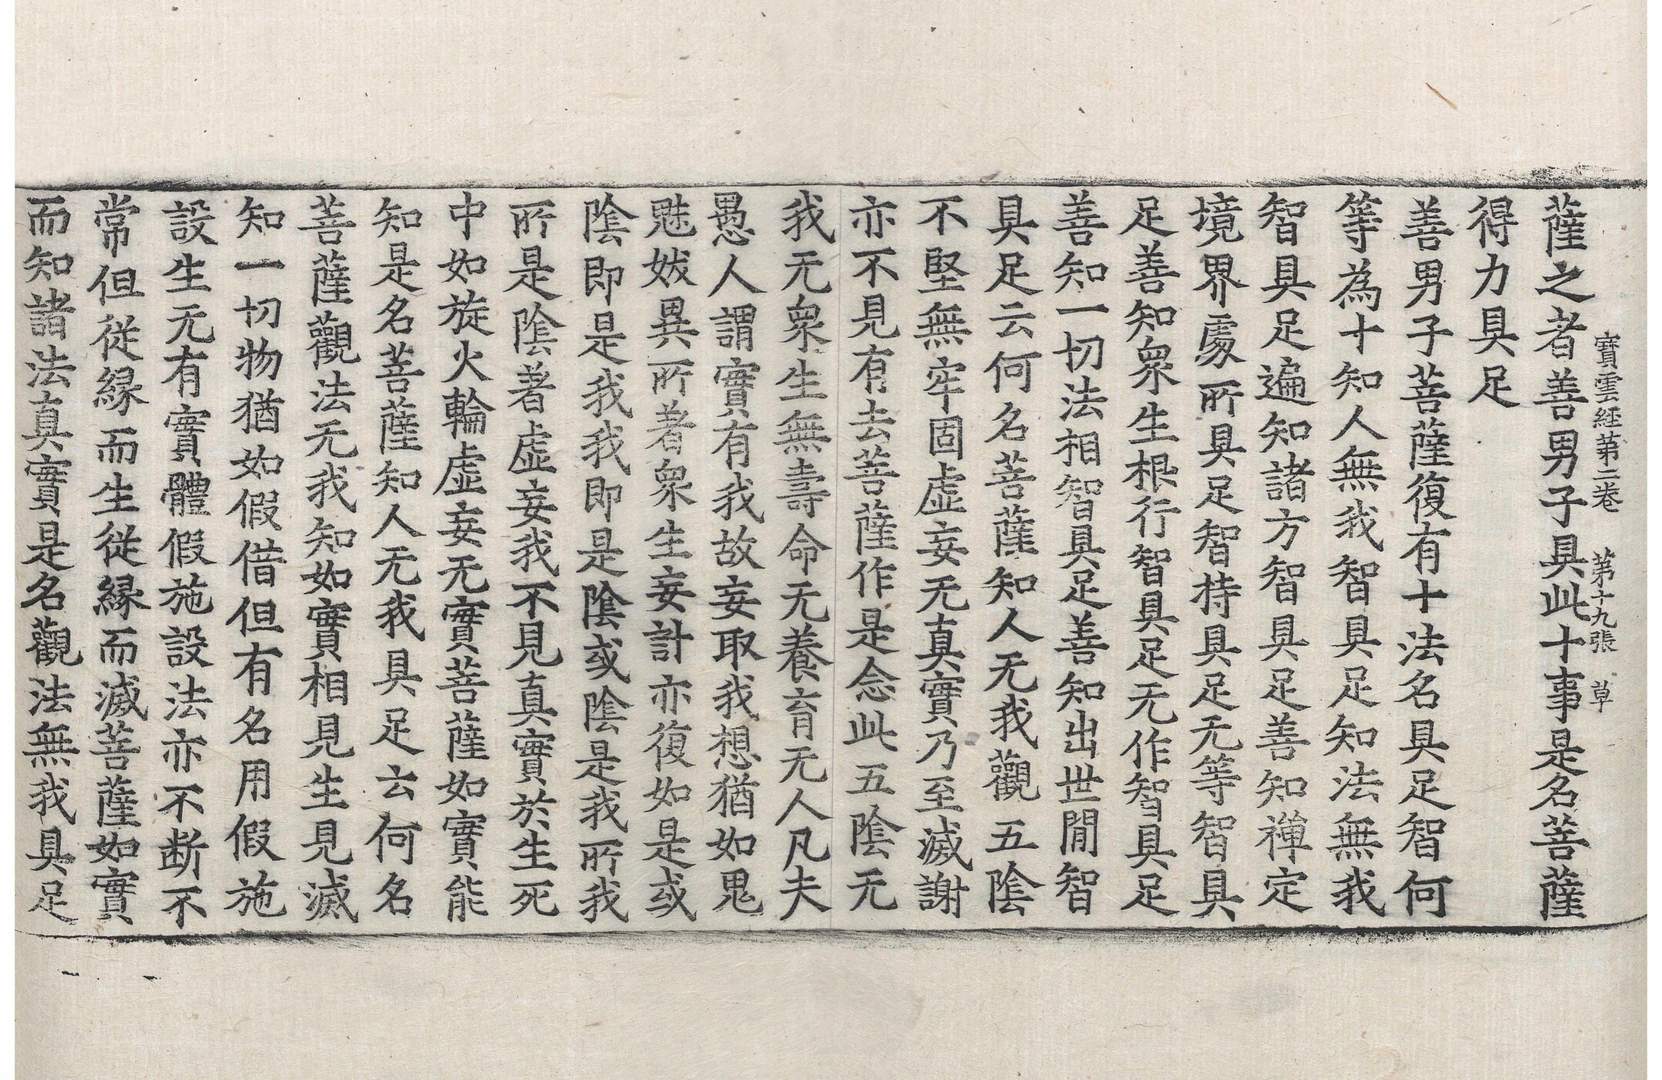 寶雲經第二卷　第十九張　草
薩之者善男子具此十事是名菩薩
得力具足
善男子菩薩復有十法名具足智何
等為十知人無我智具足知法無我
智具足遍知諸方智具足善知禪定
境界處所具足智持具足无等智具
足善知衆生根行智具足无作智具足
善知一切法相智具足善知出世閒智
具足云何名菩薩知人无我觀五陰
不堅無牢固虛妄无真實乃至滅謝
亦不見有去菩薩作是念此五陰无
我无衆生無壽命无養育无人凡夫
愚人謂實有我故妄取我想猶如鬼
魅妭異所著衆生妄計亦復如是或
陰即是我我即是陰或陰是我所我
所是陰著虛妄我不見真實於生死
中如旋火輪虛妄无實菩薩如實能
知是名菩薩知人无我具足云何名
菩薩觀法无我知如實相見生見滅
知一切物猶如假借但有名用假施
設生无有實體假施設法亦不断不
常但從縁而生從縁而滅菩薩如實
而知諸法真實是名觀法無我具足